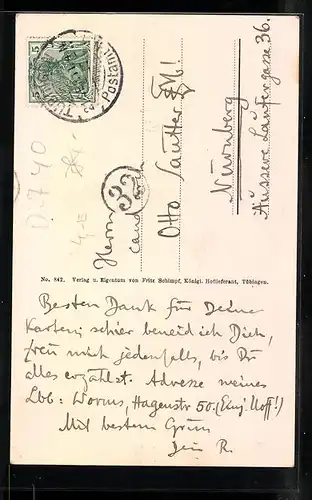 5
Postamt
D 740
32
Herrn
cand.
Otto Sautter
Nürnberg
Äussere Laufergasse 36.
No. 842. Verlag u. Eigentum von Fritz Schimpf, Königl. Hoflieferant, Tübingen.
Besten Dank für Deine
Karten; schier beneid ich Dich,
freu mich jedenfalls, bis Du
alles erzählst. Adresse meines
Lbb: Worms, Hagenstr 50. (Einj. Uoff!)
Mit bestem Gruss
Dein R.